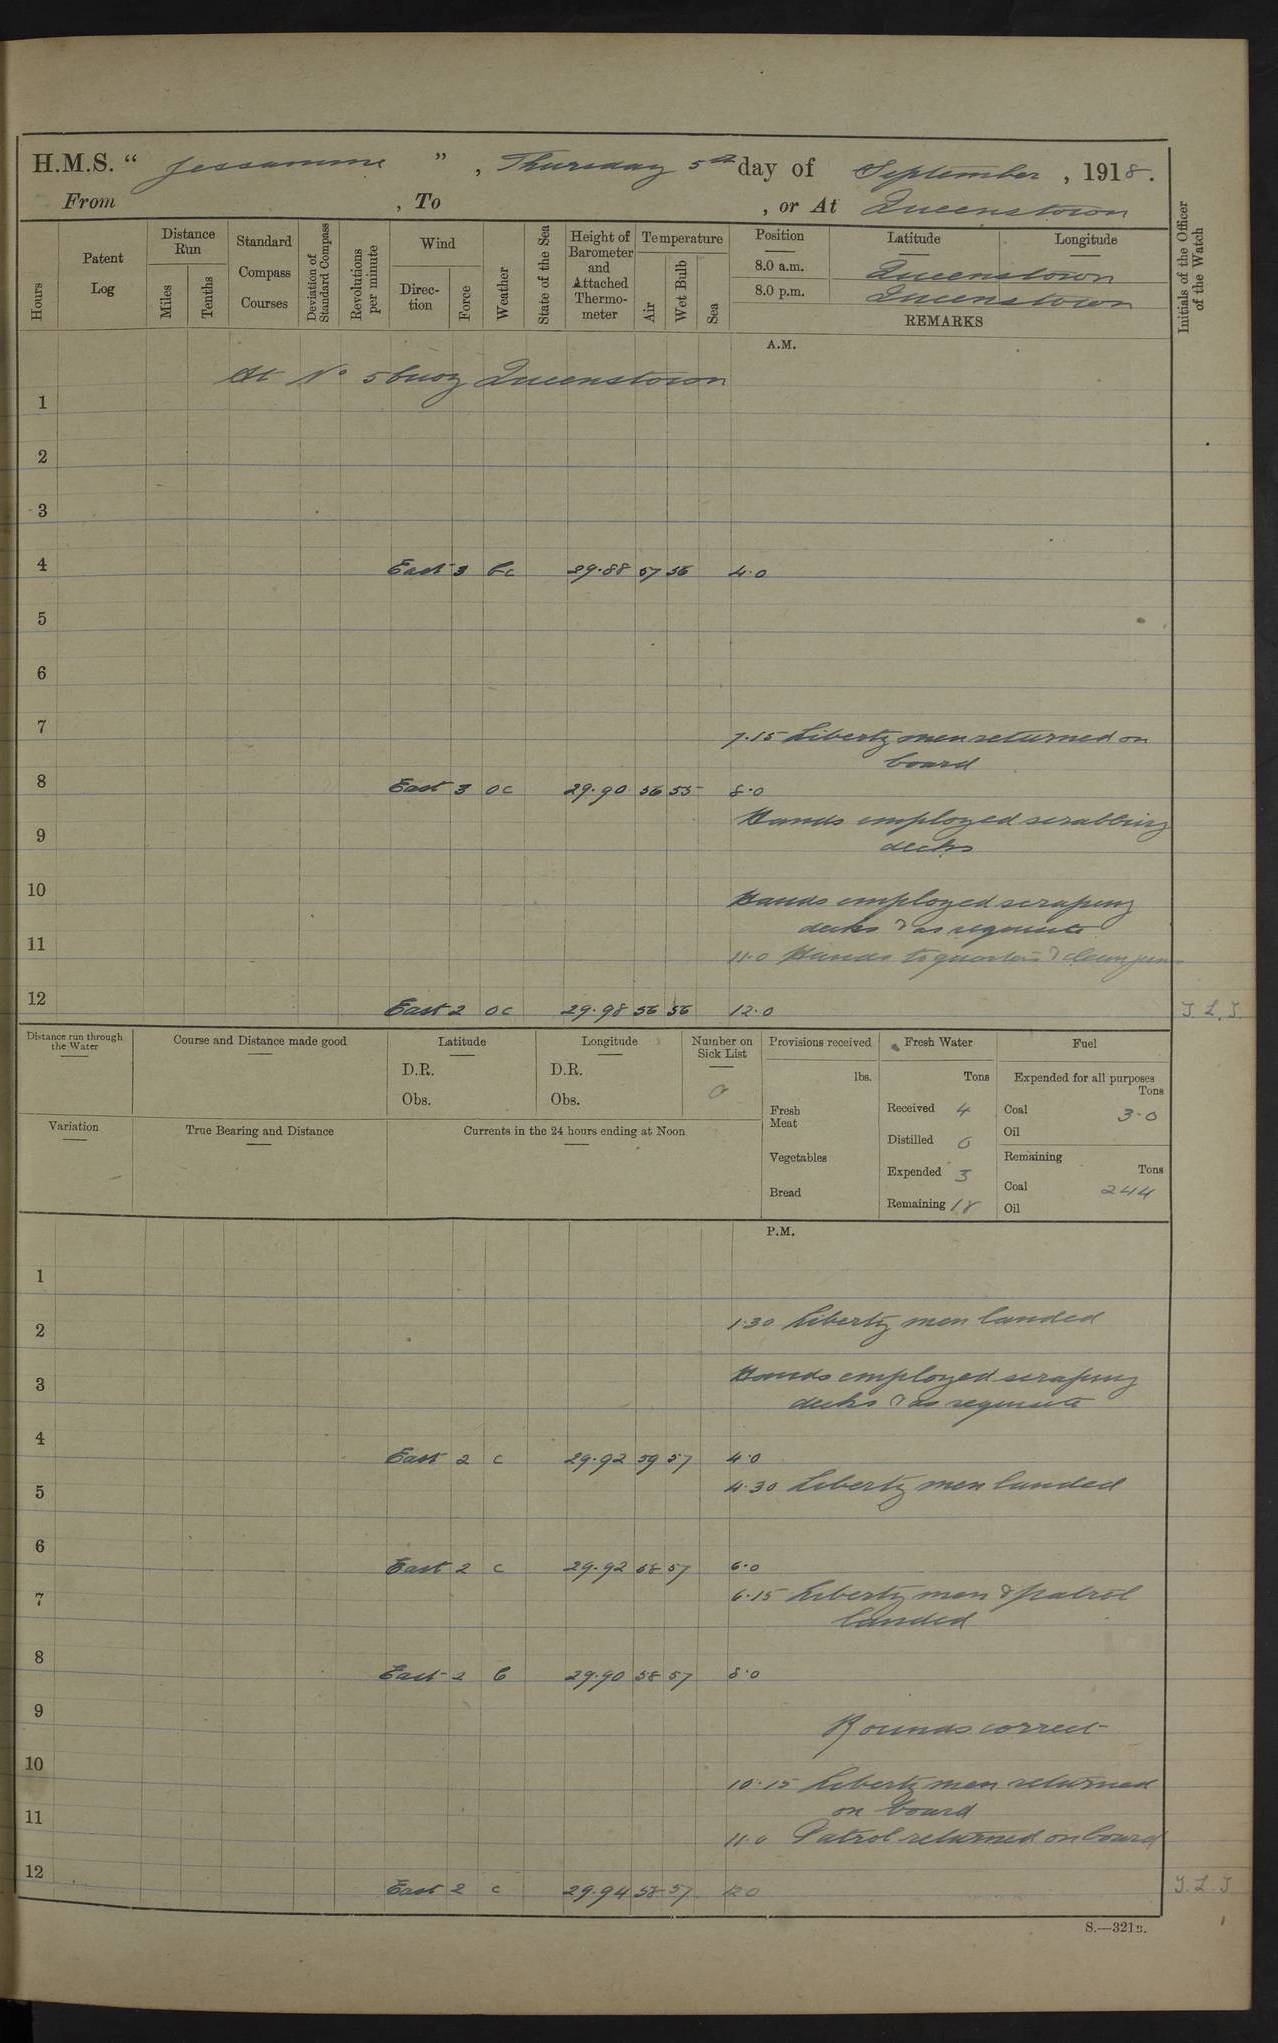 H.M.S. “ Jessamine ”, Thursday 5th day of September, 1918.
From , To , or At Queenstown
Hours
Patent Log
Distance Run
Miles
Tenths
Standard Compass Courses
Deviation of Standard Compass
Revolutions per minute
Wind
Direction
Force
Weather
State of the Sea
Height of Barometer and Attached Thermometer
Temperature
Air
Wet Bulb
Sea
Position Latitude Longitude
8.0 a.m. Queenstown
8.0 p.m. Queenstown
REMARKS
Initials of the Officer of the Watch
A.M.
At No 5 buoy Queenstown
1
2
3
4 East 3 bc 29.88 57 56 4.0
5
6
7
7.15 Liberty men returned on
board
8 East 3 oc 29.90 56 55 8.0
Hands employed scrubbing
9 decks
10 Hands employed scraping
decks & as requisite
11 11.0 Hands to quarters & clean guns
12 East 2 oc 29.98 56 56 12.0 J.L.J.
Distance run through the Water
Course and Distance made good
Latitude
D.R.
Obs.
Longitude
D.R.
Obs.
Number on Sick List
0
Variation
True Bearing and Distance
Currents in the 24 hours ending at Noon
Provisions received
lbs.
Fresh Meat
Vegetables
Bread
Fresh Water
Tons
Received 4
Distilled 0
Expended 3
Remaining 18
Fuel
Expended for all purposes
Tons
Coal 3.0
Oil
Remaining
Tons
Coal 244
Oil
P.M.
1
2 1.30 Liberty men landed
3 Hands employed scraping
decks & as requisite
4 East 2 c 29.92 59 57 4.0
4.30 Liberty men landed
5
6 East 2 c 29.92 58 57 6.0
7 6.15 Liberty men & patrol
landed
8 East 2 c 29.90 58 57 8.0
9 Rounds correct
10 10.15 Liberty men returned
on board
11 11.0 Patrol returned on board
12 East 2 c 29.94 58 57 12.0 J.L.J.
S.—321B.